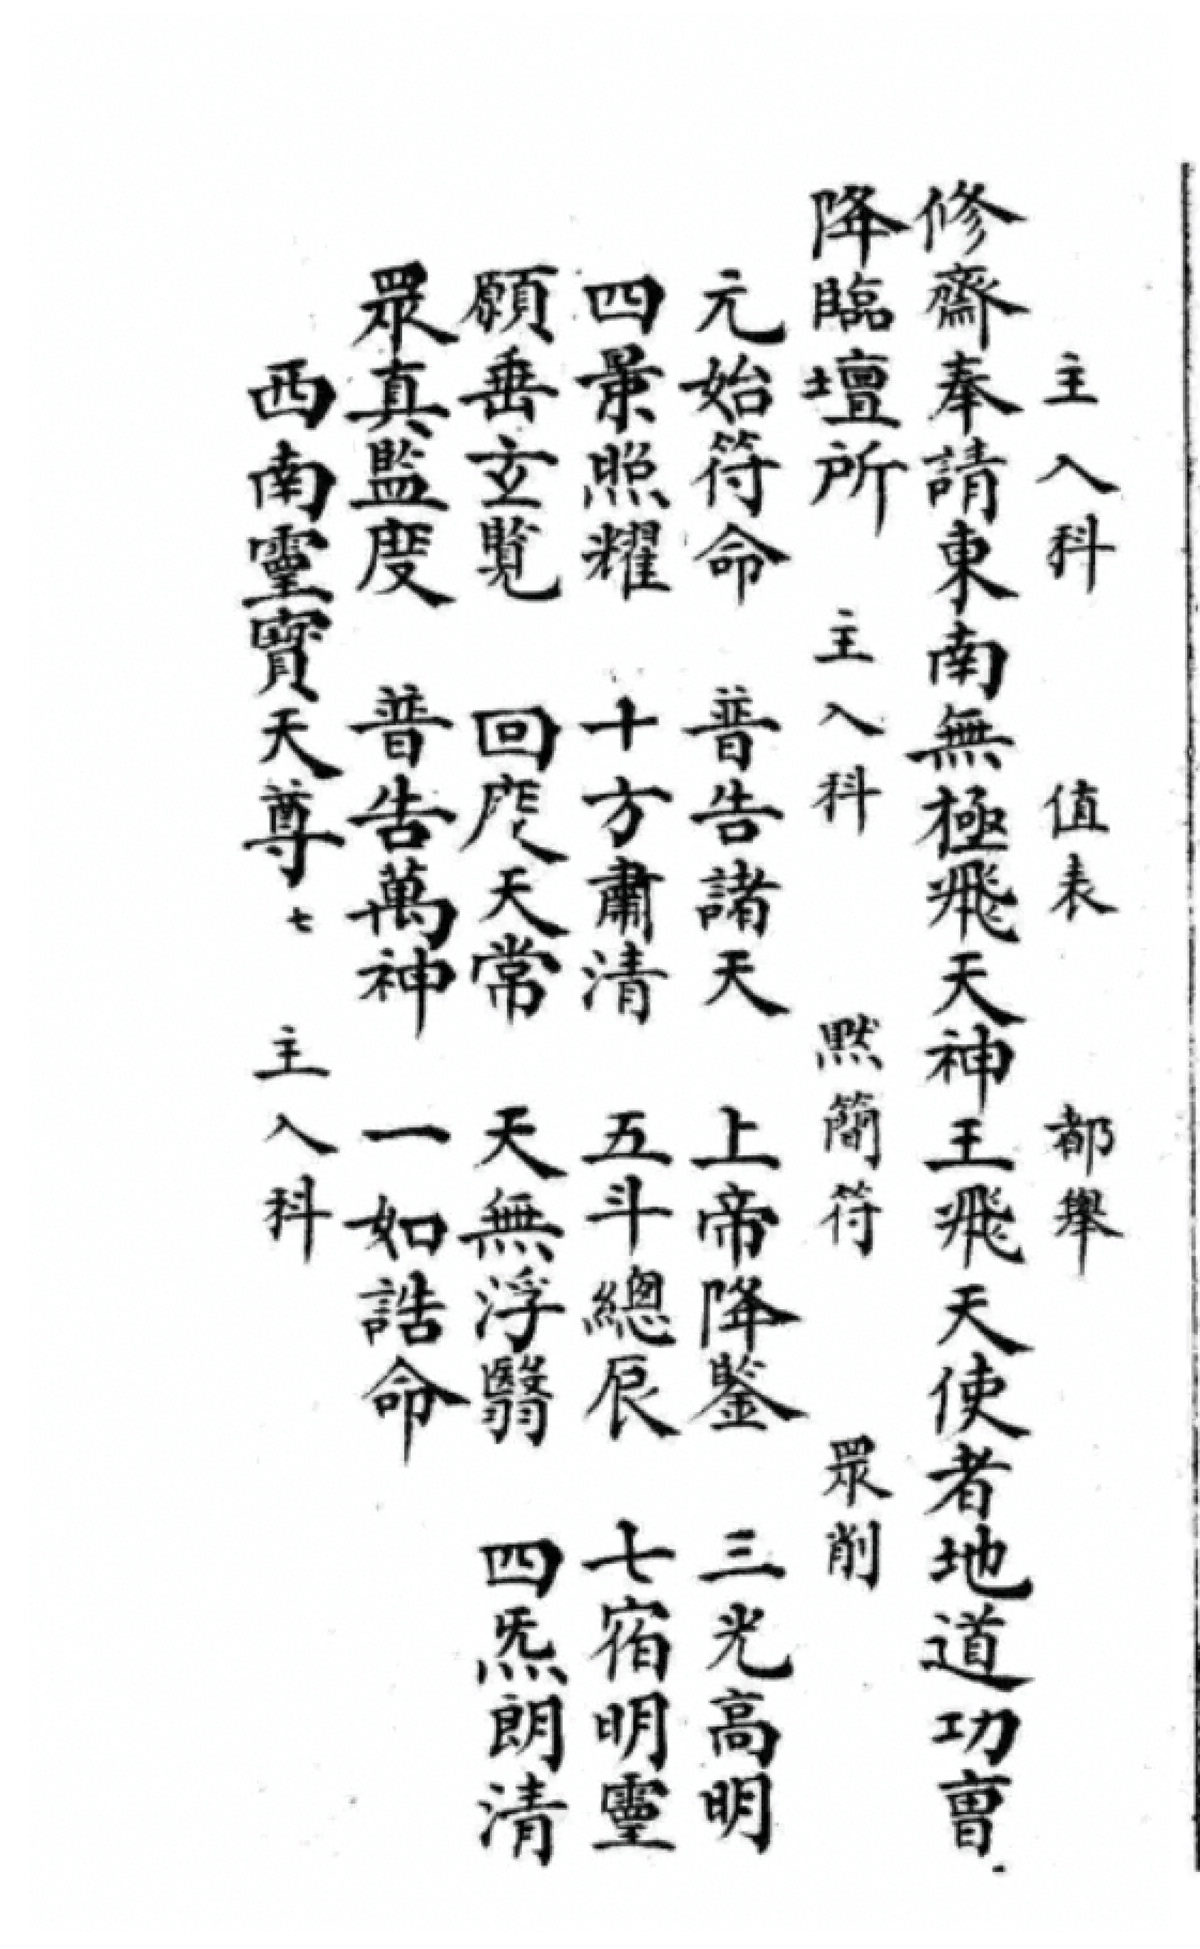 主入科　值表　都舉
修齋奉請東南無極飛天神王飛天使者地道功曺
降臨壇所　主入科　默簡符　眾削
元始符命　普告諸天　上帝降鑒　三光高明
四景照耀　十方肅清　五斗總辰　七宿明靈
願垂玄覧　回度天常　天無浮翳　四炁朗清
眾真監度　普告萬神　一如誥命
西南靈寳天尊　七　主入科